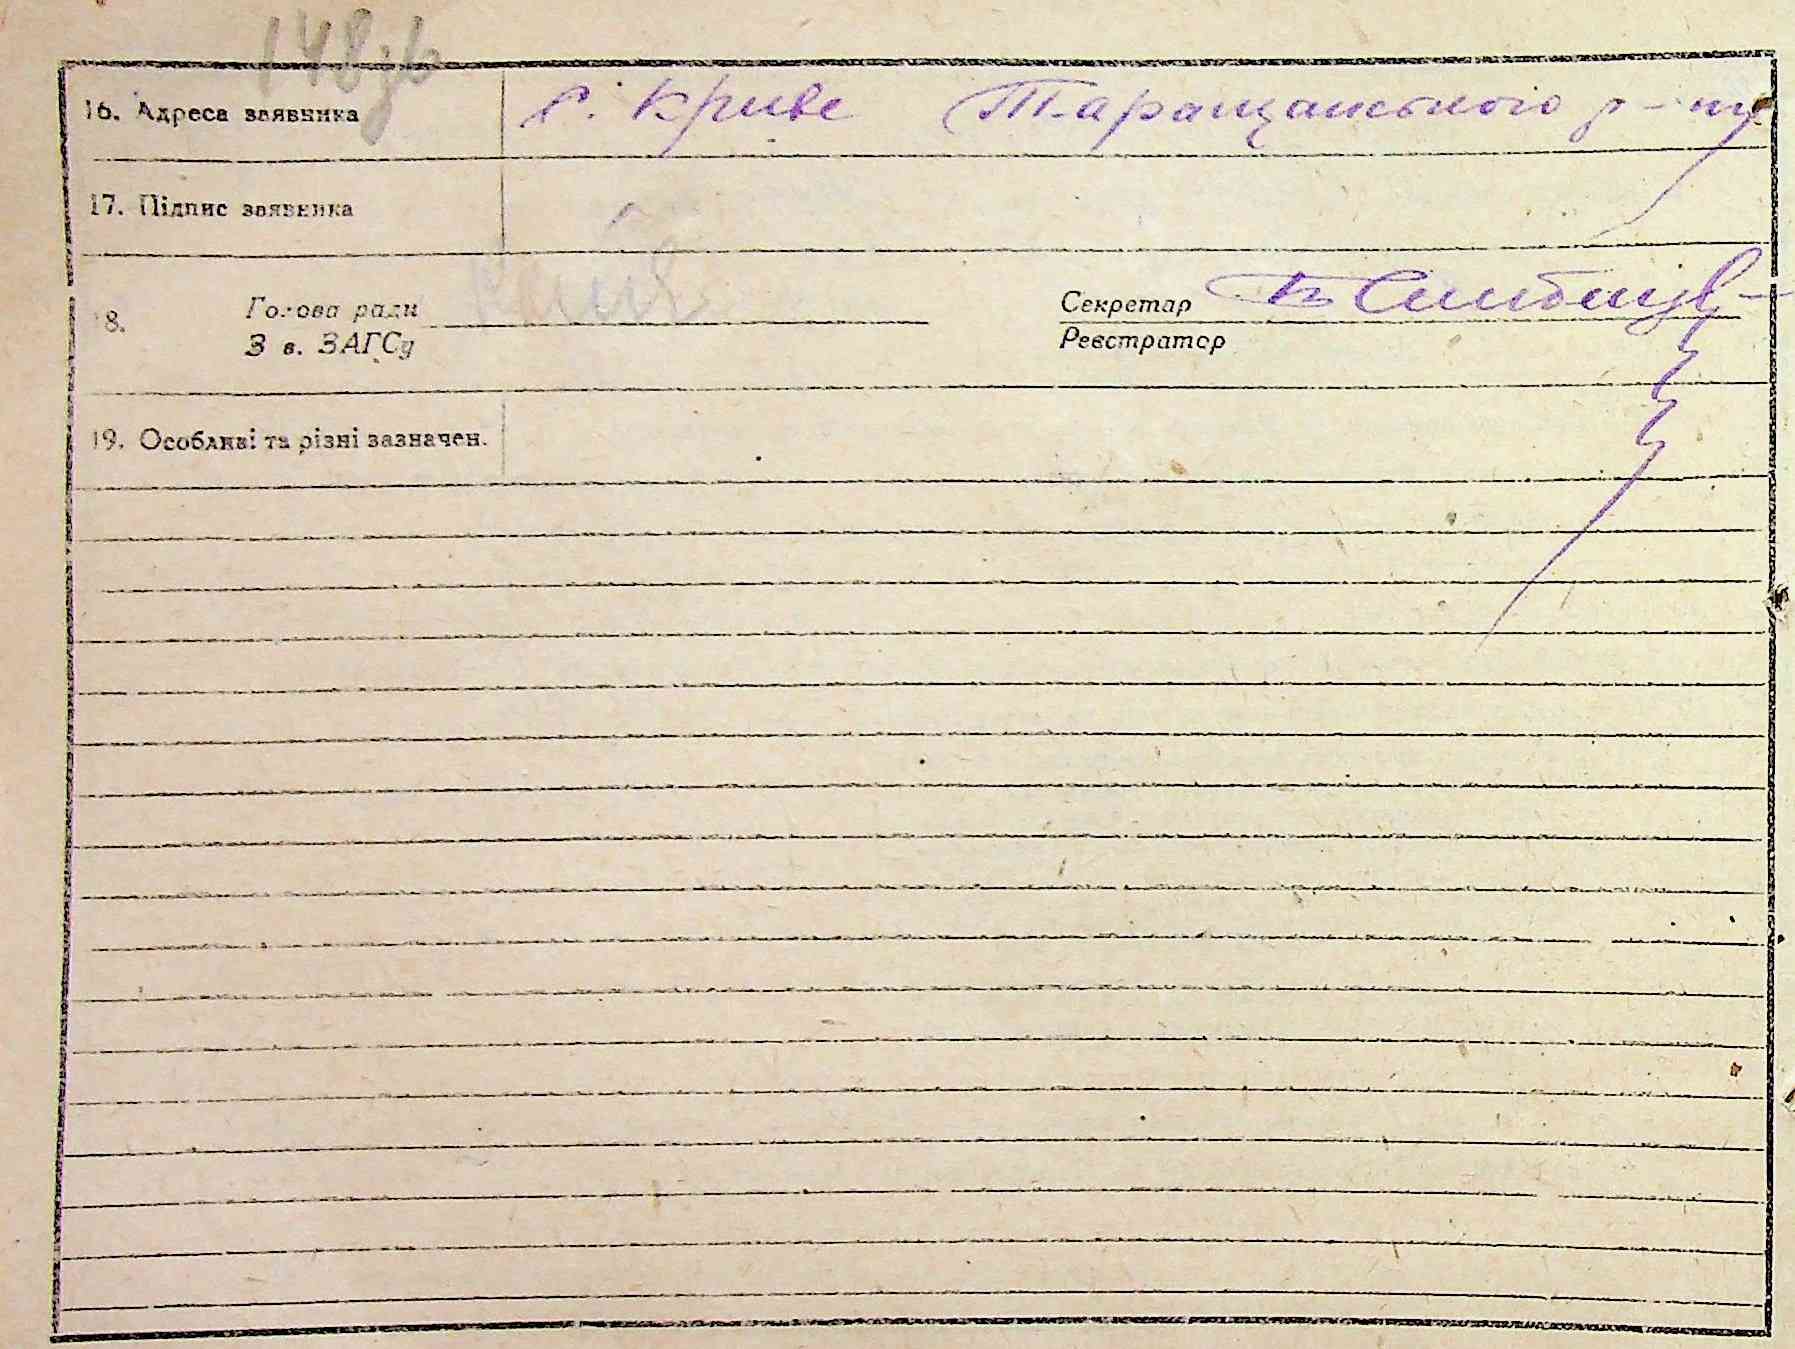 148зв
16. Адреса заявника с. Криве Таращанського р-ну
17. Підпис заявника
18. Голова ради Секретар
Зав. ЗАГСу Реєстратор
19. Особливі та різні зазначен.